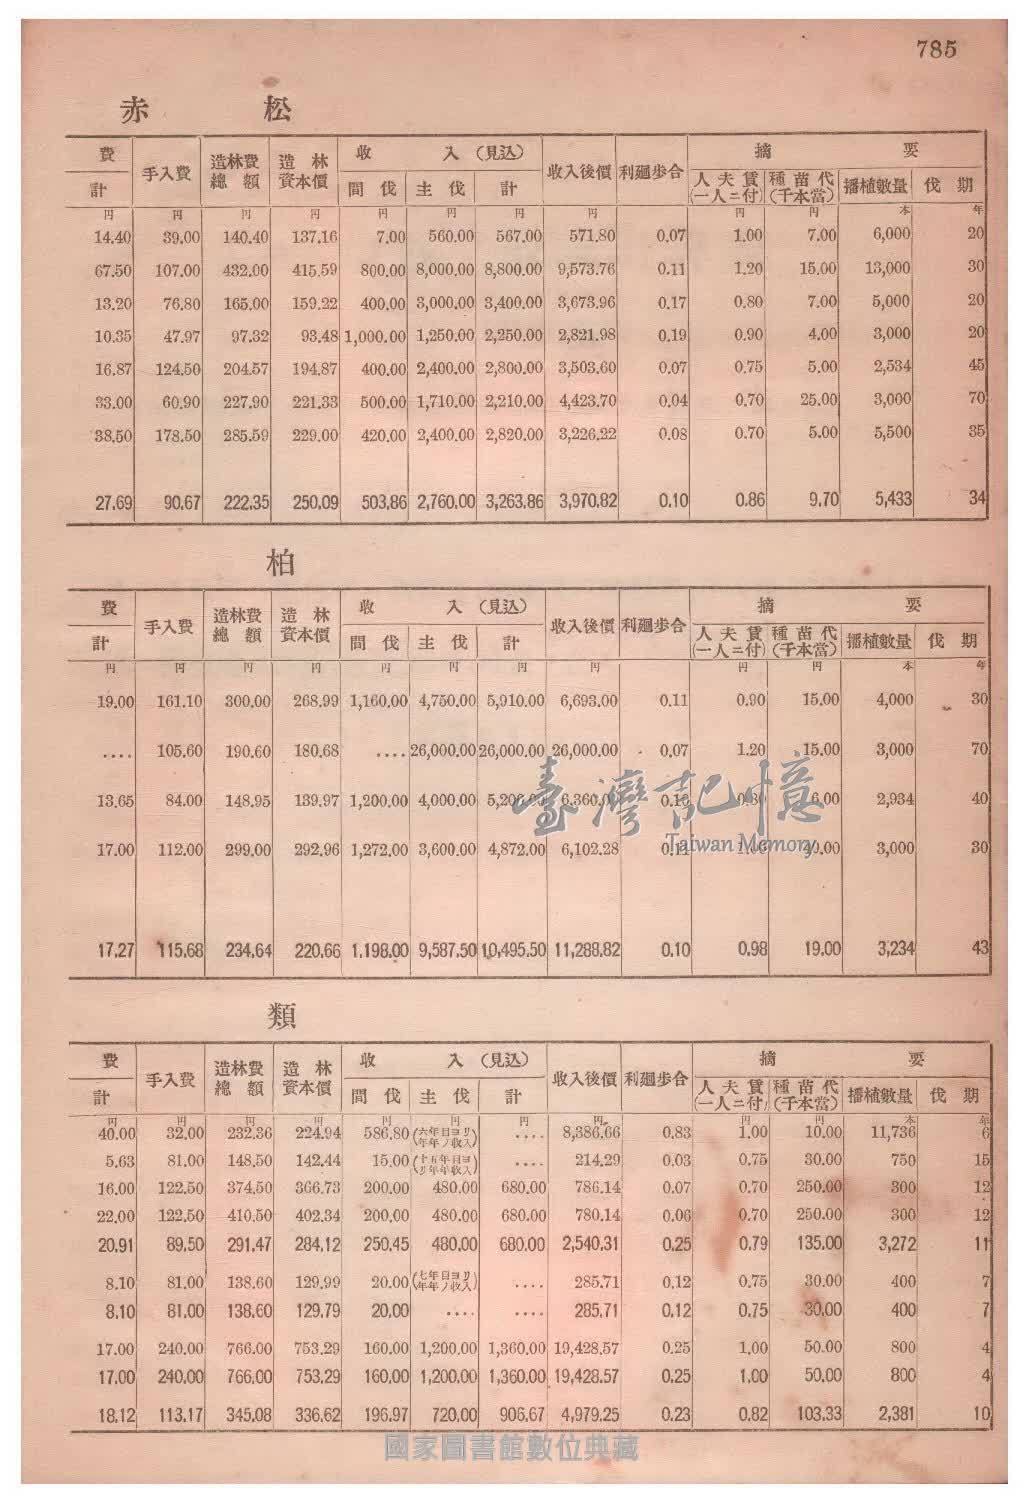 785
赤 松
費 手入費 造林費總額 造林資本價 收入(見込) 收入後價 利廻步合 摘要
計 間伐 主伐 計 人夫賃(一人ニ付) 種苗代(千本當) 播植數量 伐期
円 円 円 円 円 円 円 円 円 円 本 年
14.40 39.00 140.40 137.16 7.00 560.00 567.00 571.80 0.07 1.00 7.00 6,000 20
67.50 107.00 432.00 415.59 800.00 8,000.00 8,800.00 9,573.76 0.11 1.20 15.00 13,000 30
13.20 76.80 165.00 159.22 400.00 3,000.00 3,400.00 3,673.96 0.17 0.80 7.00 5,000 20
10.35 47.97 97.32 93.48 1,000.00 1,250.00 2,250.00 2,821.98 0.19 0.90 4.00 3,000 20
16.87 124.50 204.57 194.87 400.00 2,400.00 2,800.00 3,503.60 0.07 0.75 5.00 2,534 45
33.00 60.90 227.90 221.33 500.00 1,710.00 2,210.00 4,423.70 0.04 0.70 25.00 3,000 70
38.50 178.50 285.59 229.00 420.00 2,400.00 2,820.00 3,226.22 0.08 0.70 5.00 5,500 35
27.69 90.67 222.35 250.09 503.86 2,760.00 3,263.86 3,970.82 0.10 0.86 9.70 5,433 34
柏
費 手入費 造林費總額 造林資本價 收入(見込) 收入後價 利廻步合 摘要
計 間伐 主伐 計 人夫賃(一人ニ付) 種苗代(千本當) 播植數量 伐期
円 円 円 円 円 円 円 円 円 円 本 年
19.00 161.10 300.00 268.99 1,160.00 4,750.00 5,910.00 6,693.00 0.11 0.90 15.00 4,000 30
.... 105.60 190.60 180.68 .... 26,000.00 26,000.00 26,000.00 0.07 1.20 15.00 3,000 70
13.65 84.00 148.95 139.97 1,200.00 4,000.00 2,934 40
17.00 112.00 299.00 292.96 1,272.00 3,600.00 4,872.00 6,102.28 3,000 30
17.27 115.68 234.64 220.66 1.198.00 9,587.50 10,495.50 11,288.82 0.10 0.98 19.00 3,234 43
臺灣記憶
Taiwan Memory
類
費 手入費 造林費總額 造林資本價 收入(見込) 收入後價 利廻步合 摘要
計 間伐 主伐 計 人夫賃(一人ニ付) 種苗代(千本當) 播植數量 伐期
円 円 円 円 円 円 円 円 円 円 本 年
40.00 32.00 232.36 224.94 586.80 (六年目ヨリ年年ノ收入) .... 8,386.66 0.83 1.00 10.00 11,736 6
5.63 81.00 148.50 142.44 15.00 (十五年目ヨリ年年收入) .... 214.29 0.03 0.75 30.00 750 15
16.00 122.50 374.50 366.73 200.00 480.00 680.00 786.14 0.07 0.70 250.00 300 12
22.00 122.50 410.50 402.34 200.00 480.00 680.00 780.14 0.06 0.70 250.00 300 12
20.91 89.50 291.47 284.12 250.45 480.00 680.00 2,540.31 0.25 0.79 135.00 3,272 11
8.10 81.00 138.60 129.99 20.00 (七年目ヨリ年年ノ收入) .... 285.71 0.12 0.75 30.00 400 7
8.10 81.00 138.60 129.79 20.00 .... .... 285.71 0.12 0.75 30.00 400 7
17.00 240.00 766.00 753.29 160.00 1,200.00 1,360.00 19,428.57 0.25 1.00 50.00 800 4
17.00 240.00 766.00 753.29 160.00 1,200.00 1,360.00 19,428.57 0.25 1.00 50.00 800 4
18.12 113.17 345.08 336.62 196.97 720.00 906.67 4,979.25 0.23 0.82 103.33 2,381 10
國家圖書館數位典藏